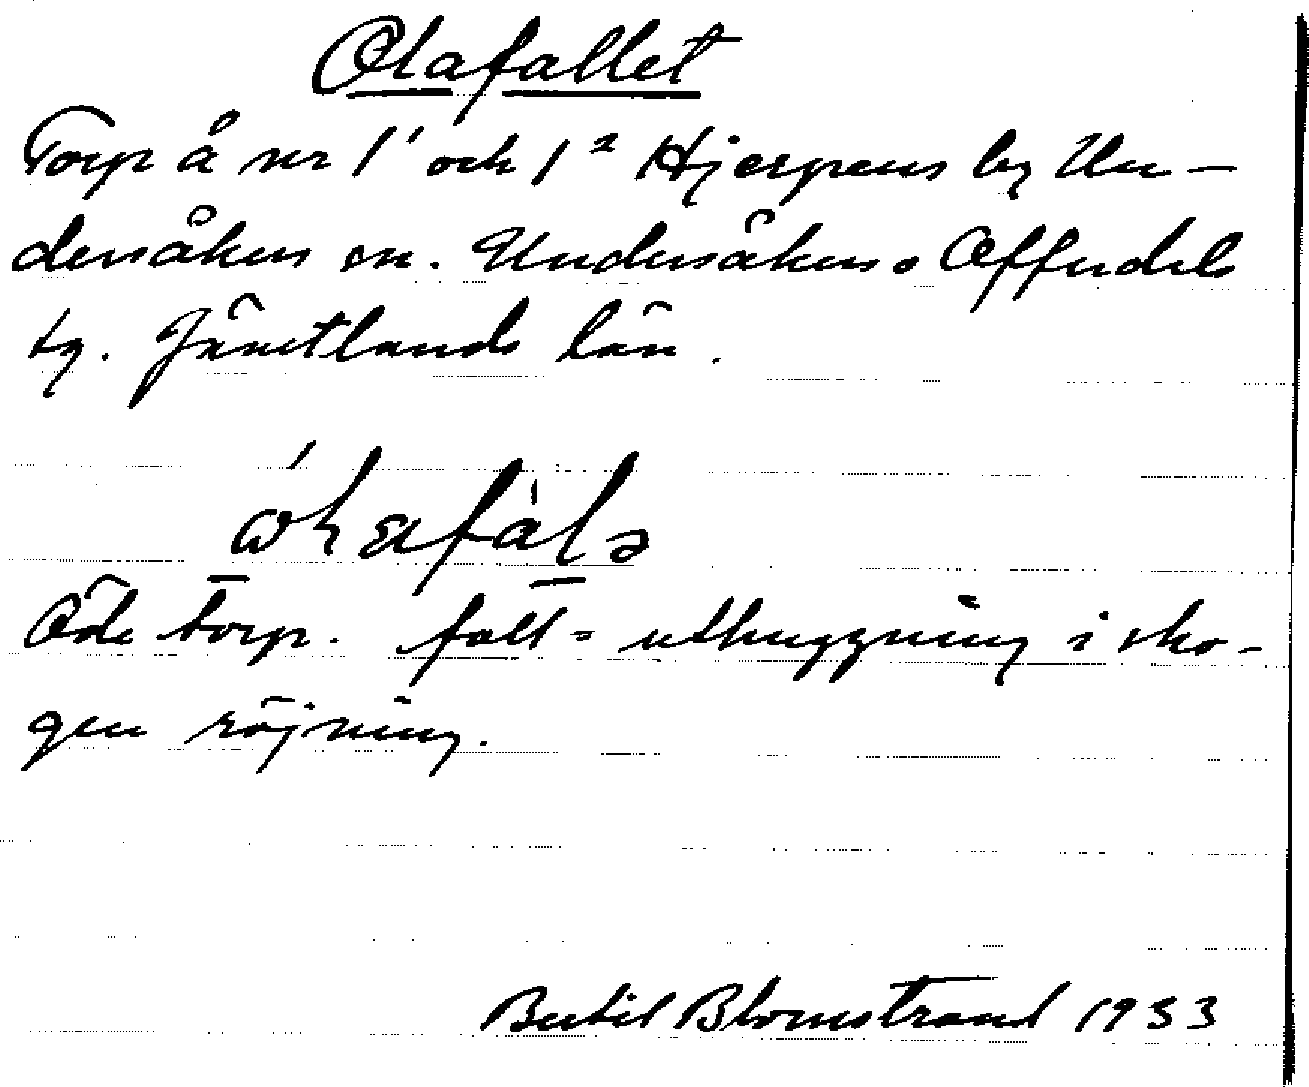 Olafallet
Torp å nr 1¹ och 1² Hjerpens by Un-
dersåkers sn. Undersåkers o Offerdals
tg. Jämtlands län.
Öde torp. fall = uthuggning i sko-
gen röjning.
Bertil Blomstrand 1933